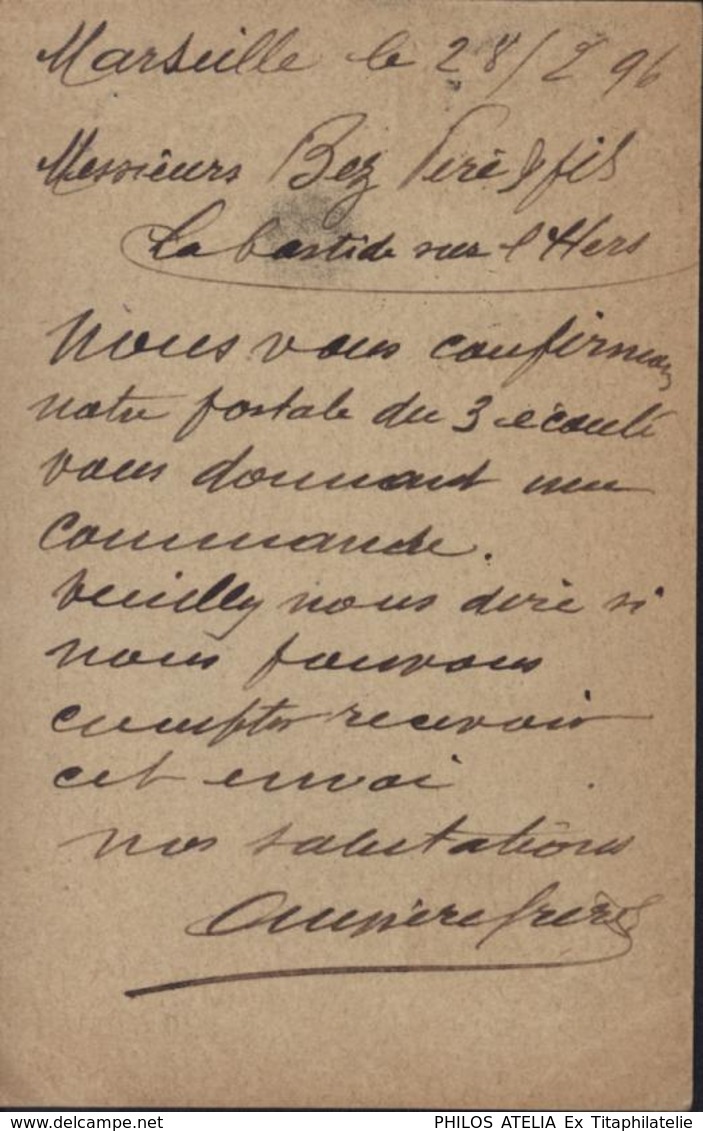 Marseille le 28/2 96
Messieurs Bez Père & fils
Labastide sur l'Hers
Nous vous confirmons
notre postale du 3 écoulé
vous donnant une
Commande.
Veuillez nous dire si
nous pouvons
compter recevoir
cet envoi
nos salutations
frères
delcampe.net
PHILOS ATELIA Ex Titaphilatelie